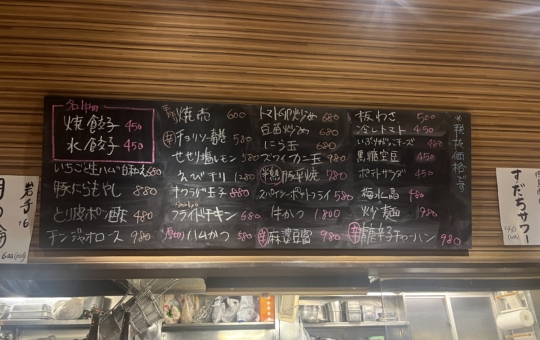 名物
焼餃子 450
水餃子 450
いちごと生ハム白和え 680
豚にらもやし 880
とり皮ポン酢 480
チンジャオロース 980
焼売 600
チョリソー春巻 580
せせり塩レモン 580
えべチリ 1280
フライドチキン 680
厚切りハムかつ 580
トマト卵炒め 680
豆苗炒め 680
にら玉 680
ズワイカニ玉 980
豚平焼 980
スパイシーポテトフライ 580
牛かつ 1800
麻婆豆腐 980
板わさ 500
冷しトマト 450
いぶりがっこチーズ 480
黒糖空豆 450
ポテトサラダ 450
梅水晶 480
炒麺 980
雛辛子チャーハン 980
※税抜価格です
すだちサワー